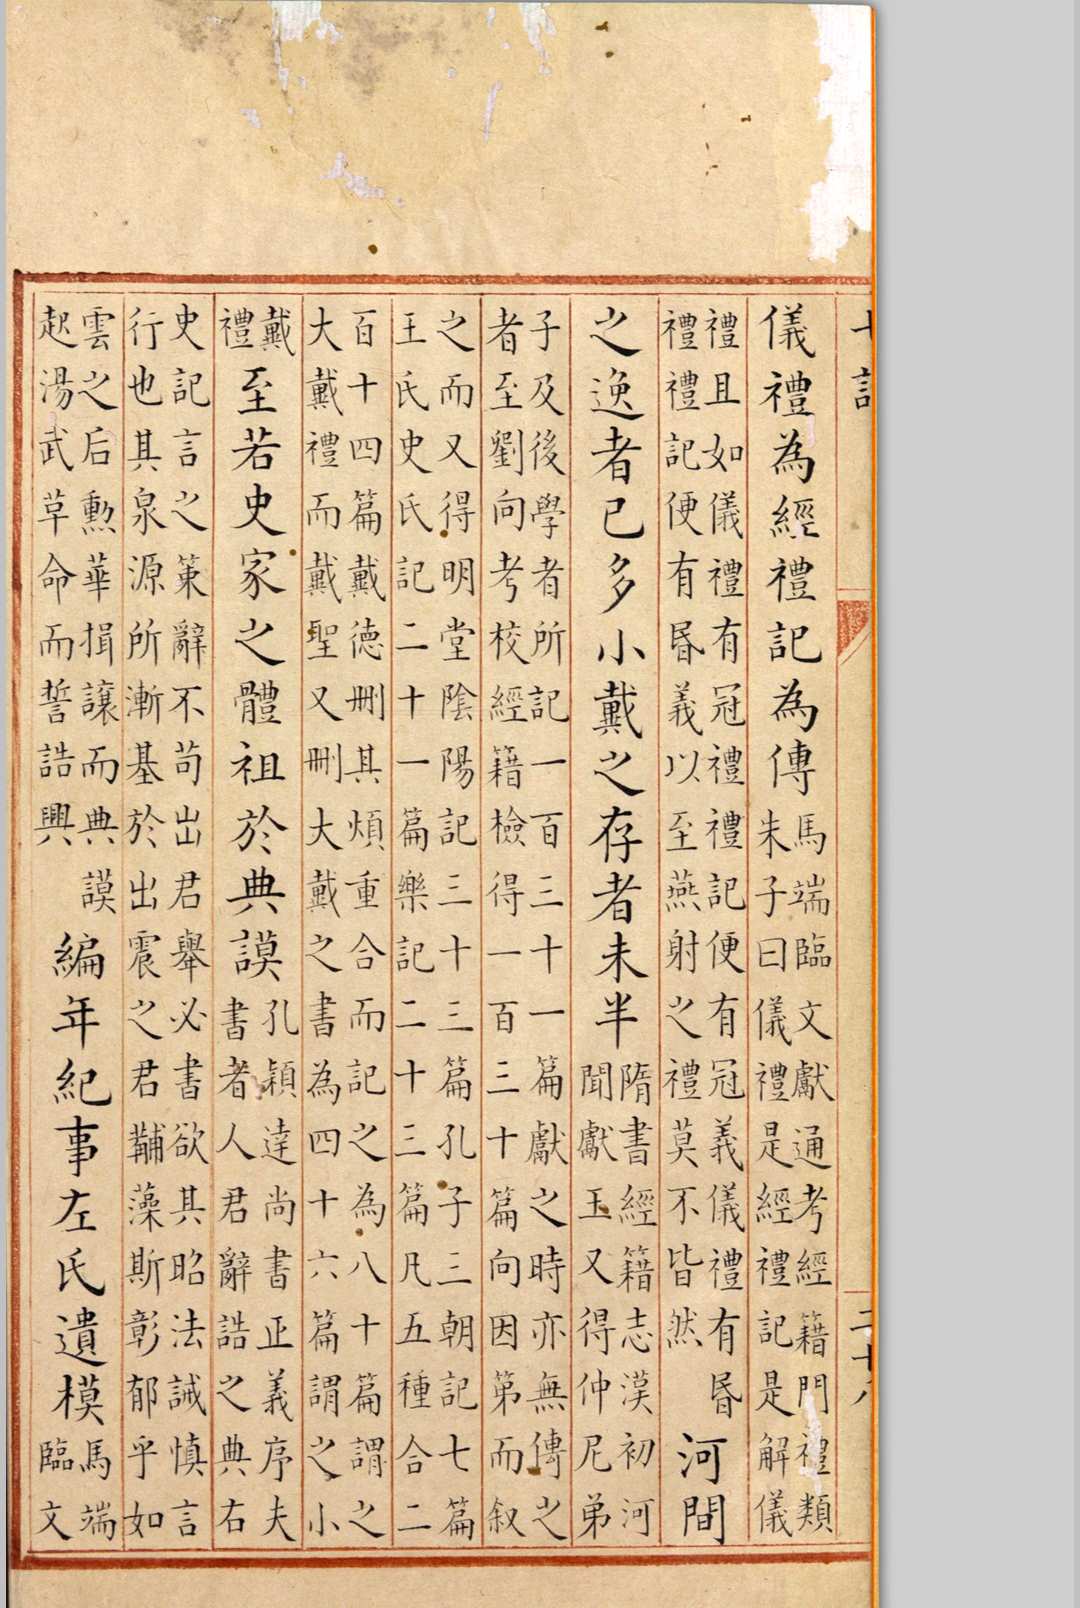 儀禮為經禮記為傳馬端臨文獻通考經籍門禮類朱子曰儀禮是經禮記是解儀
禮且如儀禮有冠禮禮記便有冠義儀禮有昏禮禮記便有昏義以至燕射之禮莫不皆然河間
之逸者已多小戴之存者未半隋書經籍志漢初河聞獻王又得仲尼弟
子及後學者所記一百三十一篇獻之時亦無傳之者至劉向考校經籍檢得一百三十篇向因第而叙
之而又得明堂陰陽記三十三篇孔子三朝記七篇王氏史氏記二十一篇樂記二十三篇凡五種合二
百十四篇戴德刪其煩重合而記之為八十篇謂之大戴禮而戴聖又刪大戴之書為四十六篇謂之小
戴禮至若史家之體祖於典謨孔穎達尚書正義序夫書者人君辭誥之典右
史記言之策辭不苟出君舉必書欲其昭法誡慎言行也其泉源所漸基於出震之君黼藻斯彰郁乎如
雲之后勳華揖讓而典謨起湯武草命而誓誥興編年紀事左氏遺模馬端臨文